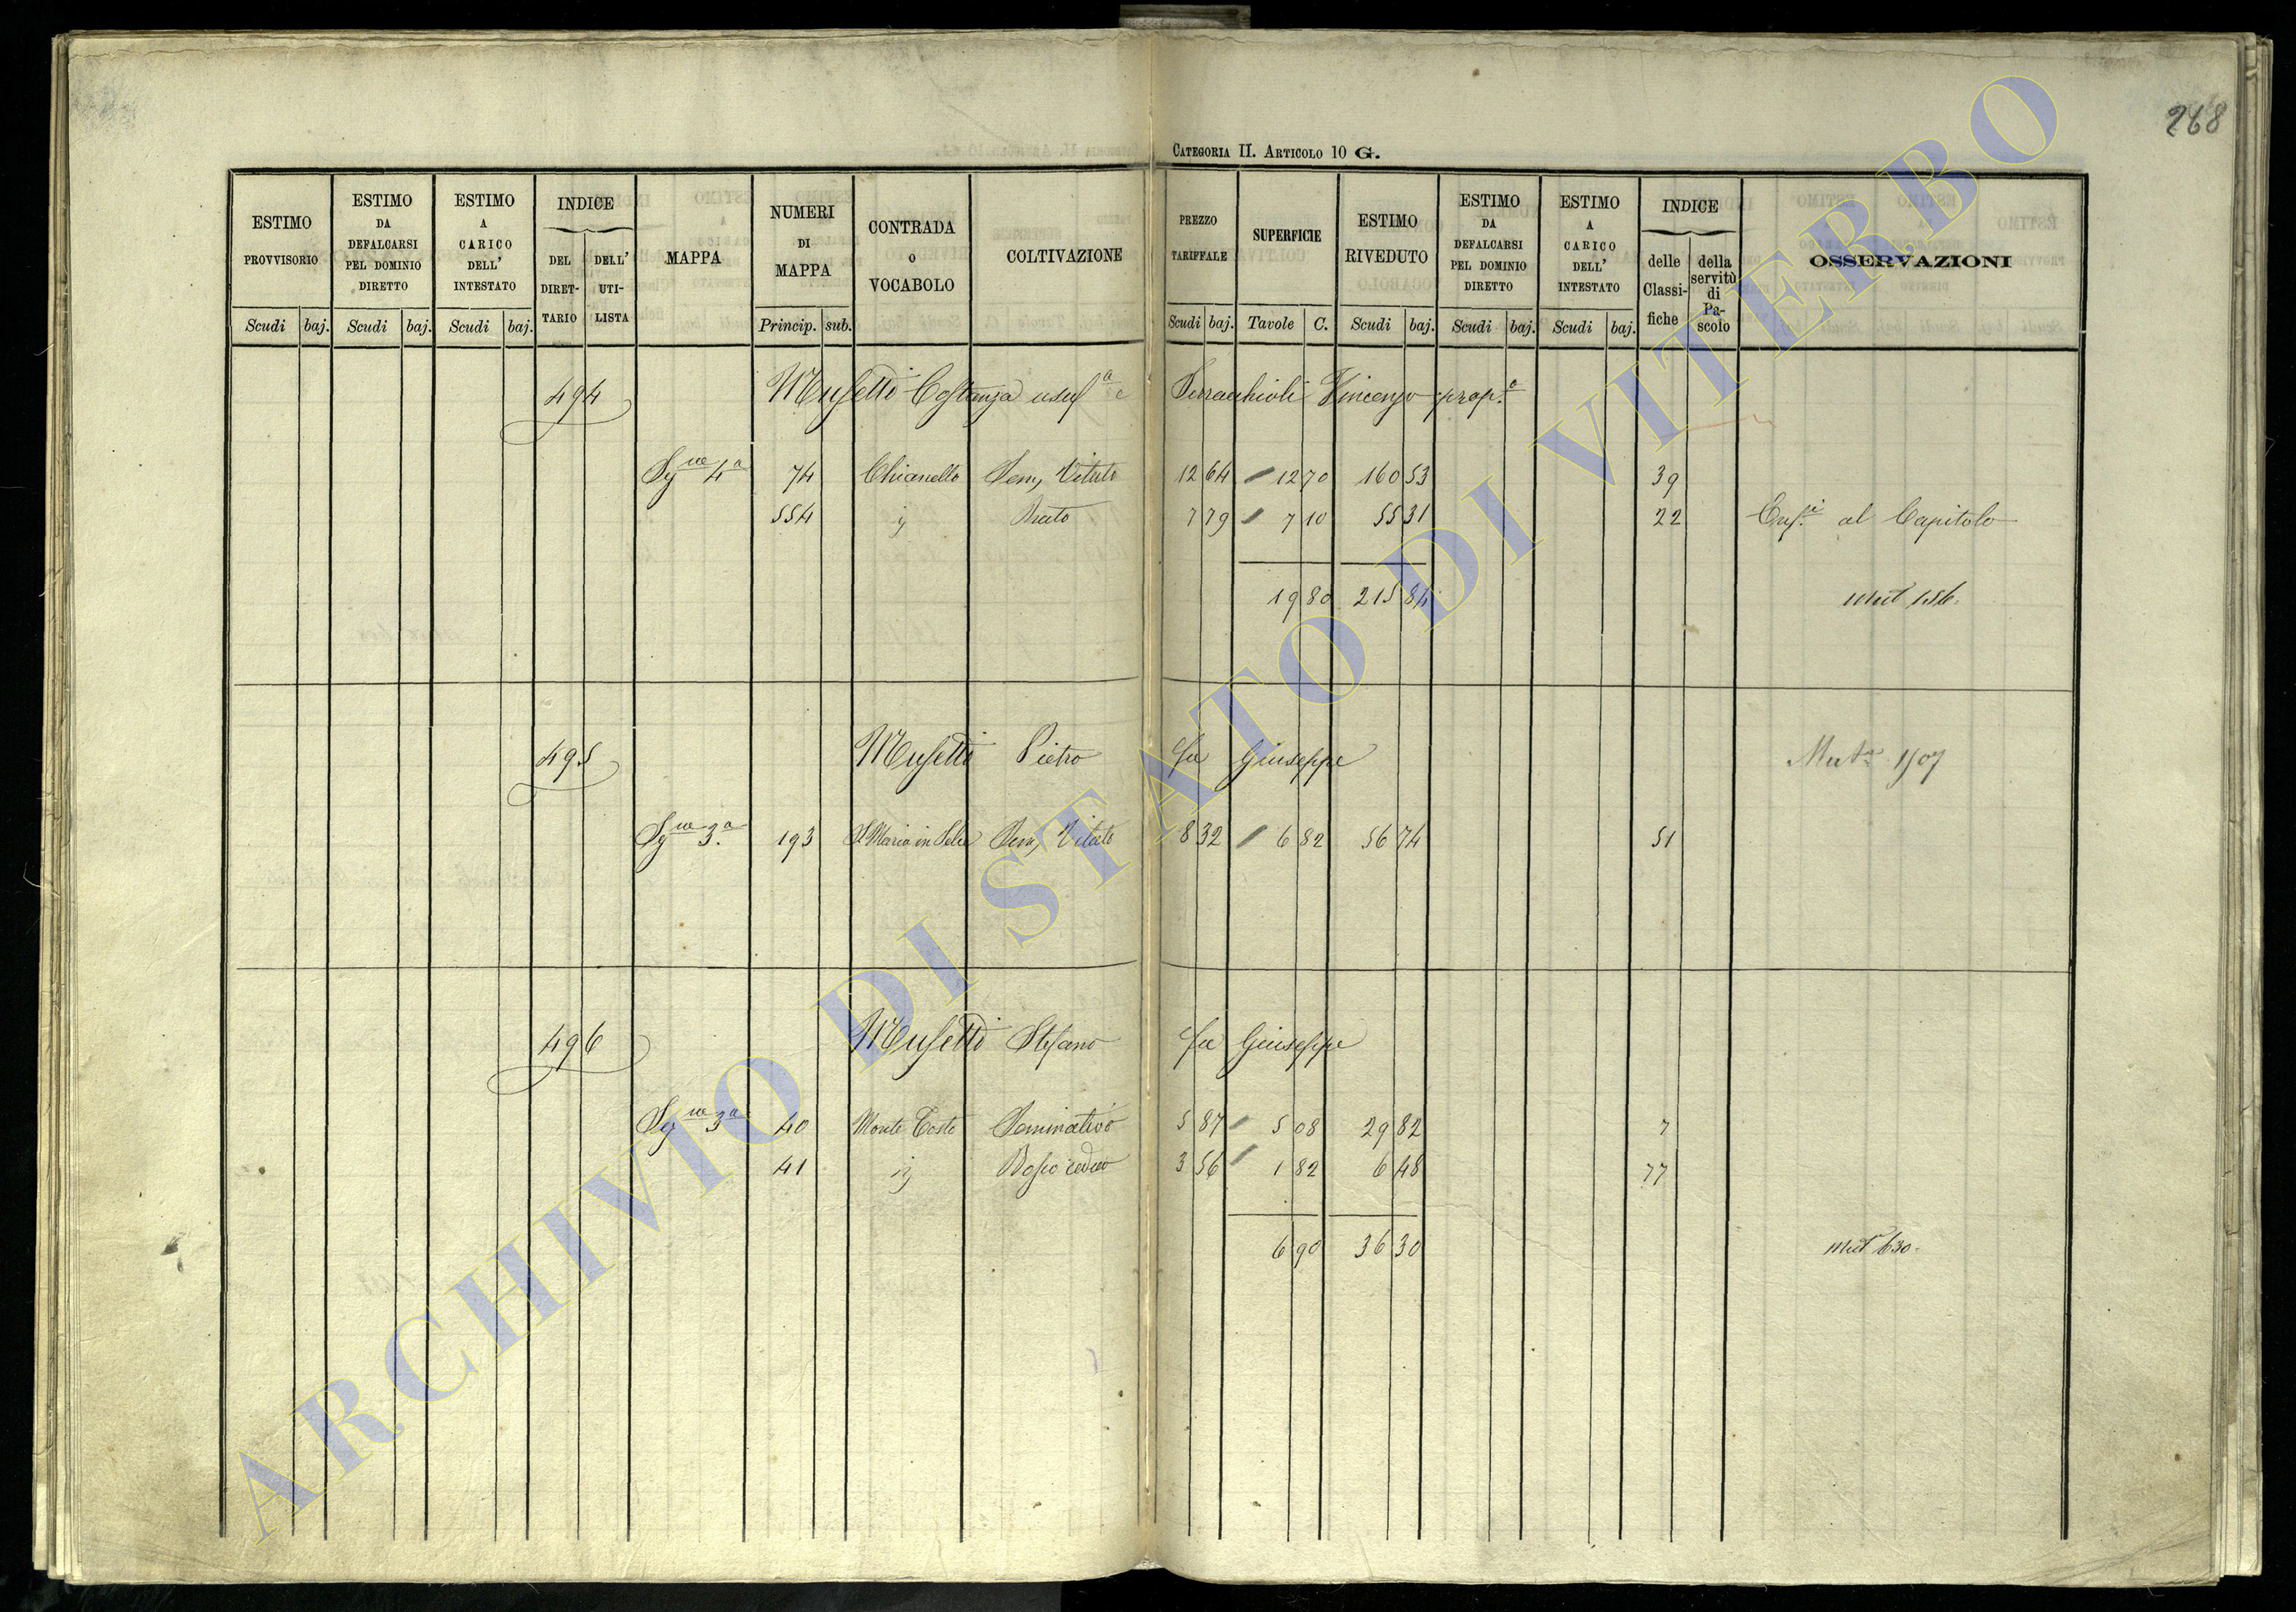 268
CATEGORIA II. ARTICOLO 10 G.
ESTIMO PROVVISORIO Scudi baj.
ESTIMO DA DEFALCARSI PEL DOMINIO DIRETTO Scudi baj.
ESTIMO A CARICO DELL' INTESTATO Scudi baj.
INDICE DEL DIRETTARIO DELL' UTILISTA
MAPPA
NUMERI DI MAPPA Princip. sub.
CONTRADA O VOCABOLO
COLTIVAZIONE
PREZZO TARIFFALE Scudi baj.
SUPERFICIE Tavole C.
ESTIMO RIVEDUTO Scudi baj.
ESTIMO DA DEFALCARSI PEL DOMINIO DIRETTO Scudi baj.
ESTIMO A CARICO DELL' INTESTATO Scudi baj.
INDICE delle Classifiche della servitù di Pascolo
OSSERVAZIONI
494 Musetti Costanza usufª e Serracchioli Vincenzo propª
Sgne 4ª 74 Chianello Sem, Vitato 12 64 12 70 160 53 39
554 ij Prato 7 79 7 10 55 31 22 al Capitolo
19 80 215 84 Mut 156.
495 Musetti Pietro fu Giuseppe
Sgne 3ª 193 S Maria in Selce Sem, Vitato 8 32 6 82 56 74 51
496 Musetti Stefano fu Giuseppe
Sgne 3ª 40 Monte Tosto Seminativo 5 87 5 08 29 82 7
41 ij Bosco ceduo 3 56 1 82 6 48 77
6 90 36 30 Mut 630.
ARCHIVIO DI STATO DI VITERBO